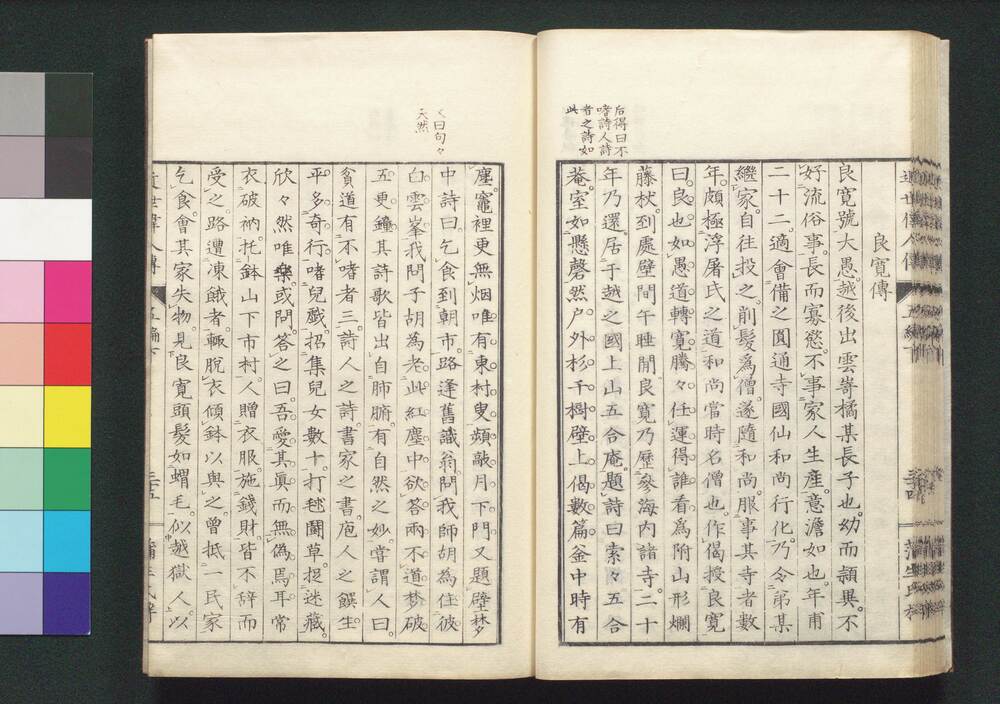 后得曰不
嗜詩人詩
者之詩如
此
良寬傳
良寬號大愚越後出雲嵜橘某長子也幼而頴異不
好流俗事長而寡慾不事家人生產意澹如也年甫
二十二適會備之圓通寺國仙和尚行化乃令弟某
繼家自往投之削髮爲僧遂隨和尚服事其寺者數
年頗極浮屠氏之道和尚當時名僧也作偈授良寬
曰良也如愚道轉寬騰々任運得誰看爲附山形爛
藤杖到處壁間午睡閒良寬乃歷參海内諸寺二十
年乃還居于越之國上山五合庵題詩曰索々五合
菴室如懸磬然户外杉千樹壁上偈數篇釜中時有
く曰句々
天然
塵竈裡更無烟唯有東村叟頻敲月下門又題壁梦
中詩曰乞食到朝市路逢舊識翁問我師胡為住彼
白雲峯我問子胡為老此紅塵中欲答兩不道梦破
五更鐘其詩歌皆出自肺腑有自然之妙嘗謂人曰
貧道有不嗜者三詩人之詩書家之書庖人之饌生
平多奇行嗜兒戲招集兒女數十打毬鬪草捉迷藏
欣々然唯樂或問答之曰吾愛其眞而無僞焉耳常
衣破衲托鉢山下市村人贈衣服施錢財皆不辞而
受之路遭凍餓者輙脫衣傾鉢以與之曾抵一民家
乞食會其家失物見良寬頭髮如蝟毛似越獄人以
近世偉人傳